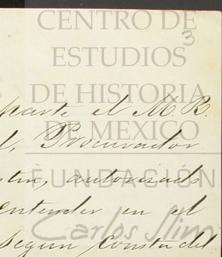 CENTRO DE
ESTUDIOS
3
DE HISTORIA
parte el M. R.
DE MEXICO
l. Procurador
autoridad
FUNDACIÓN
entender en el
Carlos Slim
segun consta del